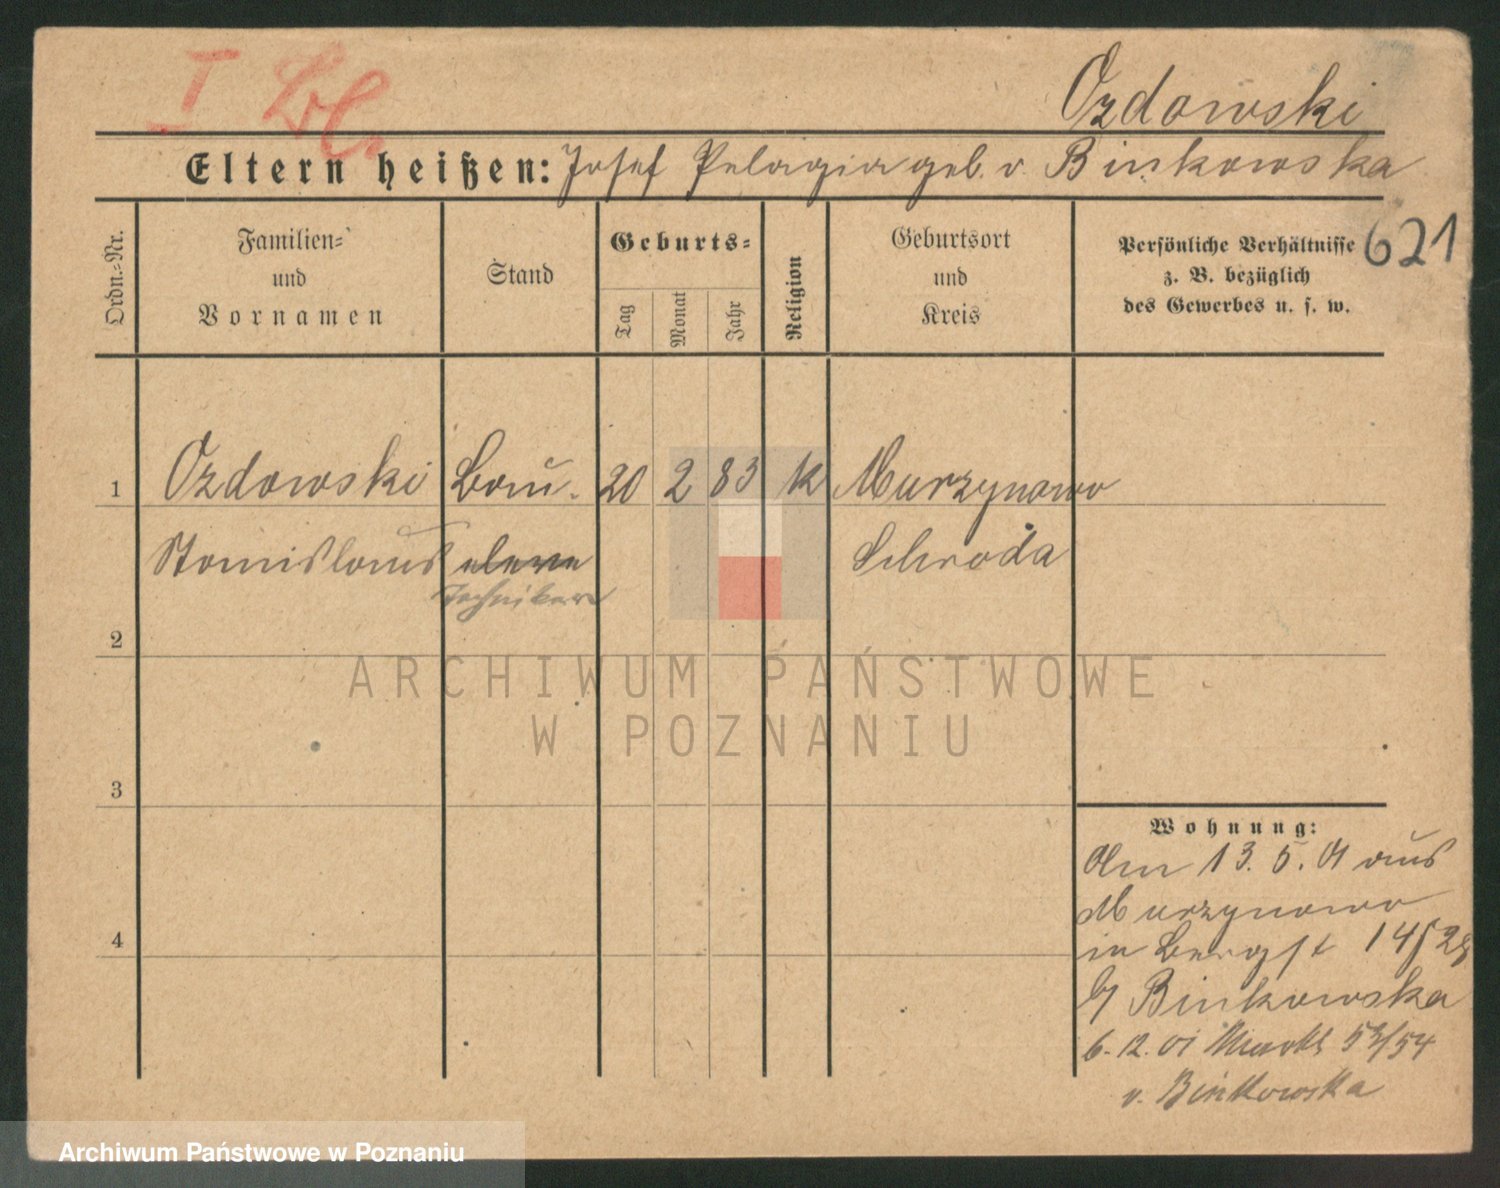 I Bl.
Ozdowski
Eltern heißen: Josef Pelagia geb. v. Binkowska
621
Ordn.=Nr.
Familien=
und
Vornamen
Stand
Geburts=
Tag
Monat
Jahr
Religion
Geburtsort
und
Kreis
Persönliche Verhältnisse
z. B. bezüglich
des Gewerbes u. s. w.
1 Ozdowski Bau- 20 2 83 k Murzynowo
Stanislaus eleve Schroda
Techniker
2
ARCHIWUM PAŃSTWOWE
W POZNANIU
3
Wohnung:
Am 13. 5. 01 aus
Murzynowo
in Bergst 14/28
b/ Binkowska
6. 12. 01 Markt 53/54
v. Binkowska
4
Archiwum Państwowe w Poznaniu